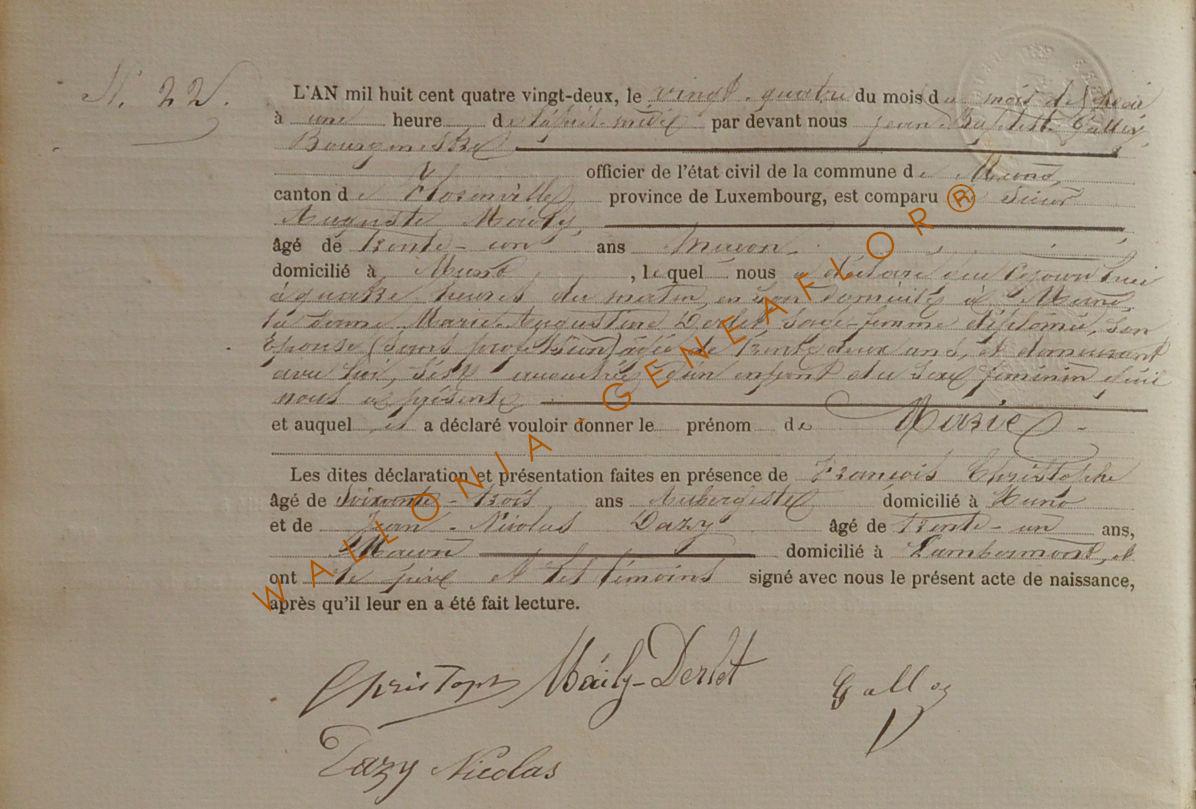 N. 22.
L'AN mil huit cent quatre vingt-deux, le vingt-quatre du mois du mois de
à une heure de l'après-midi par devant nous Jean Baptiste Galloy,
Bourgmestre
officier de l'état civil de la commune de Muno,
canton de Florenville, province de Luxembourg, est comparu le Sieur
Auguste Maily,
âgé de trente-un ans Maçon,
domicilié à Muno, lequel nous a déclaré que cejourd'hui
à quatre heures du matin, en son domicile à Muno,
la Dame Marie-Augustine Derlet sage-femme diplômée, son
Epouse (sans profession) âgée de trente deux ans, et demeurant
avec lui, est accouchée d'un enfant du sexe féminin qu'il
nous a présenté
et auquel il a déclaré vouloir donner le prénom de Marie
Les dites déclaration et présentation faites en présence de François Christophe
âgé de soixante-trois ans Aubergiste domicilié à Muno
et de Jean-Nicolas Dazy âgé de trente-un ans,
Maçon domicilié à Lambermont, et
ont le père et les témoins signé avec nous le présent acte de naissance,
après qu'il leur en a été fait lecture.
Christophe Maily-Derlet Galloy
Dazy Nicolas
WALLONIA-GENEAFLOR®